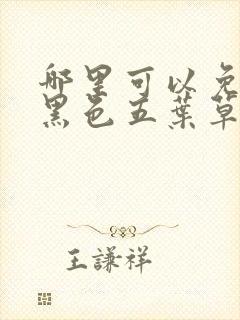 哪里可以免
黑色五葉草
王謙祥